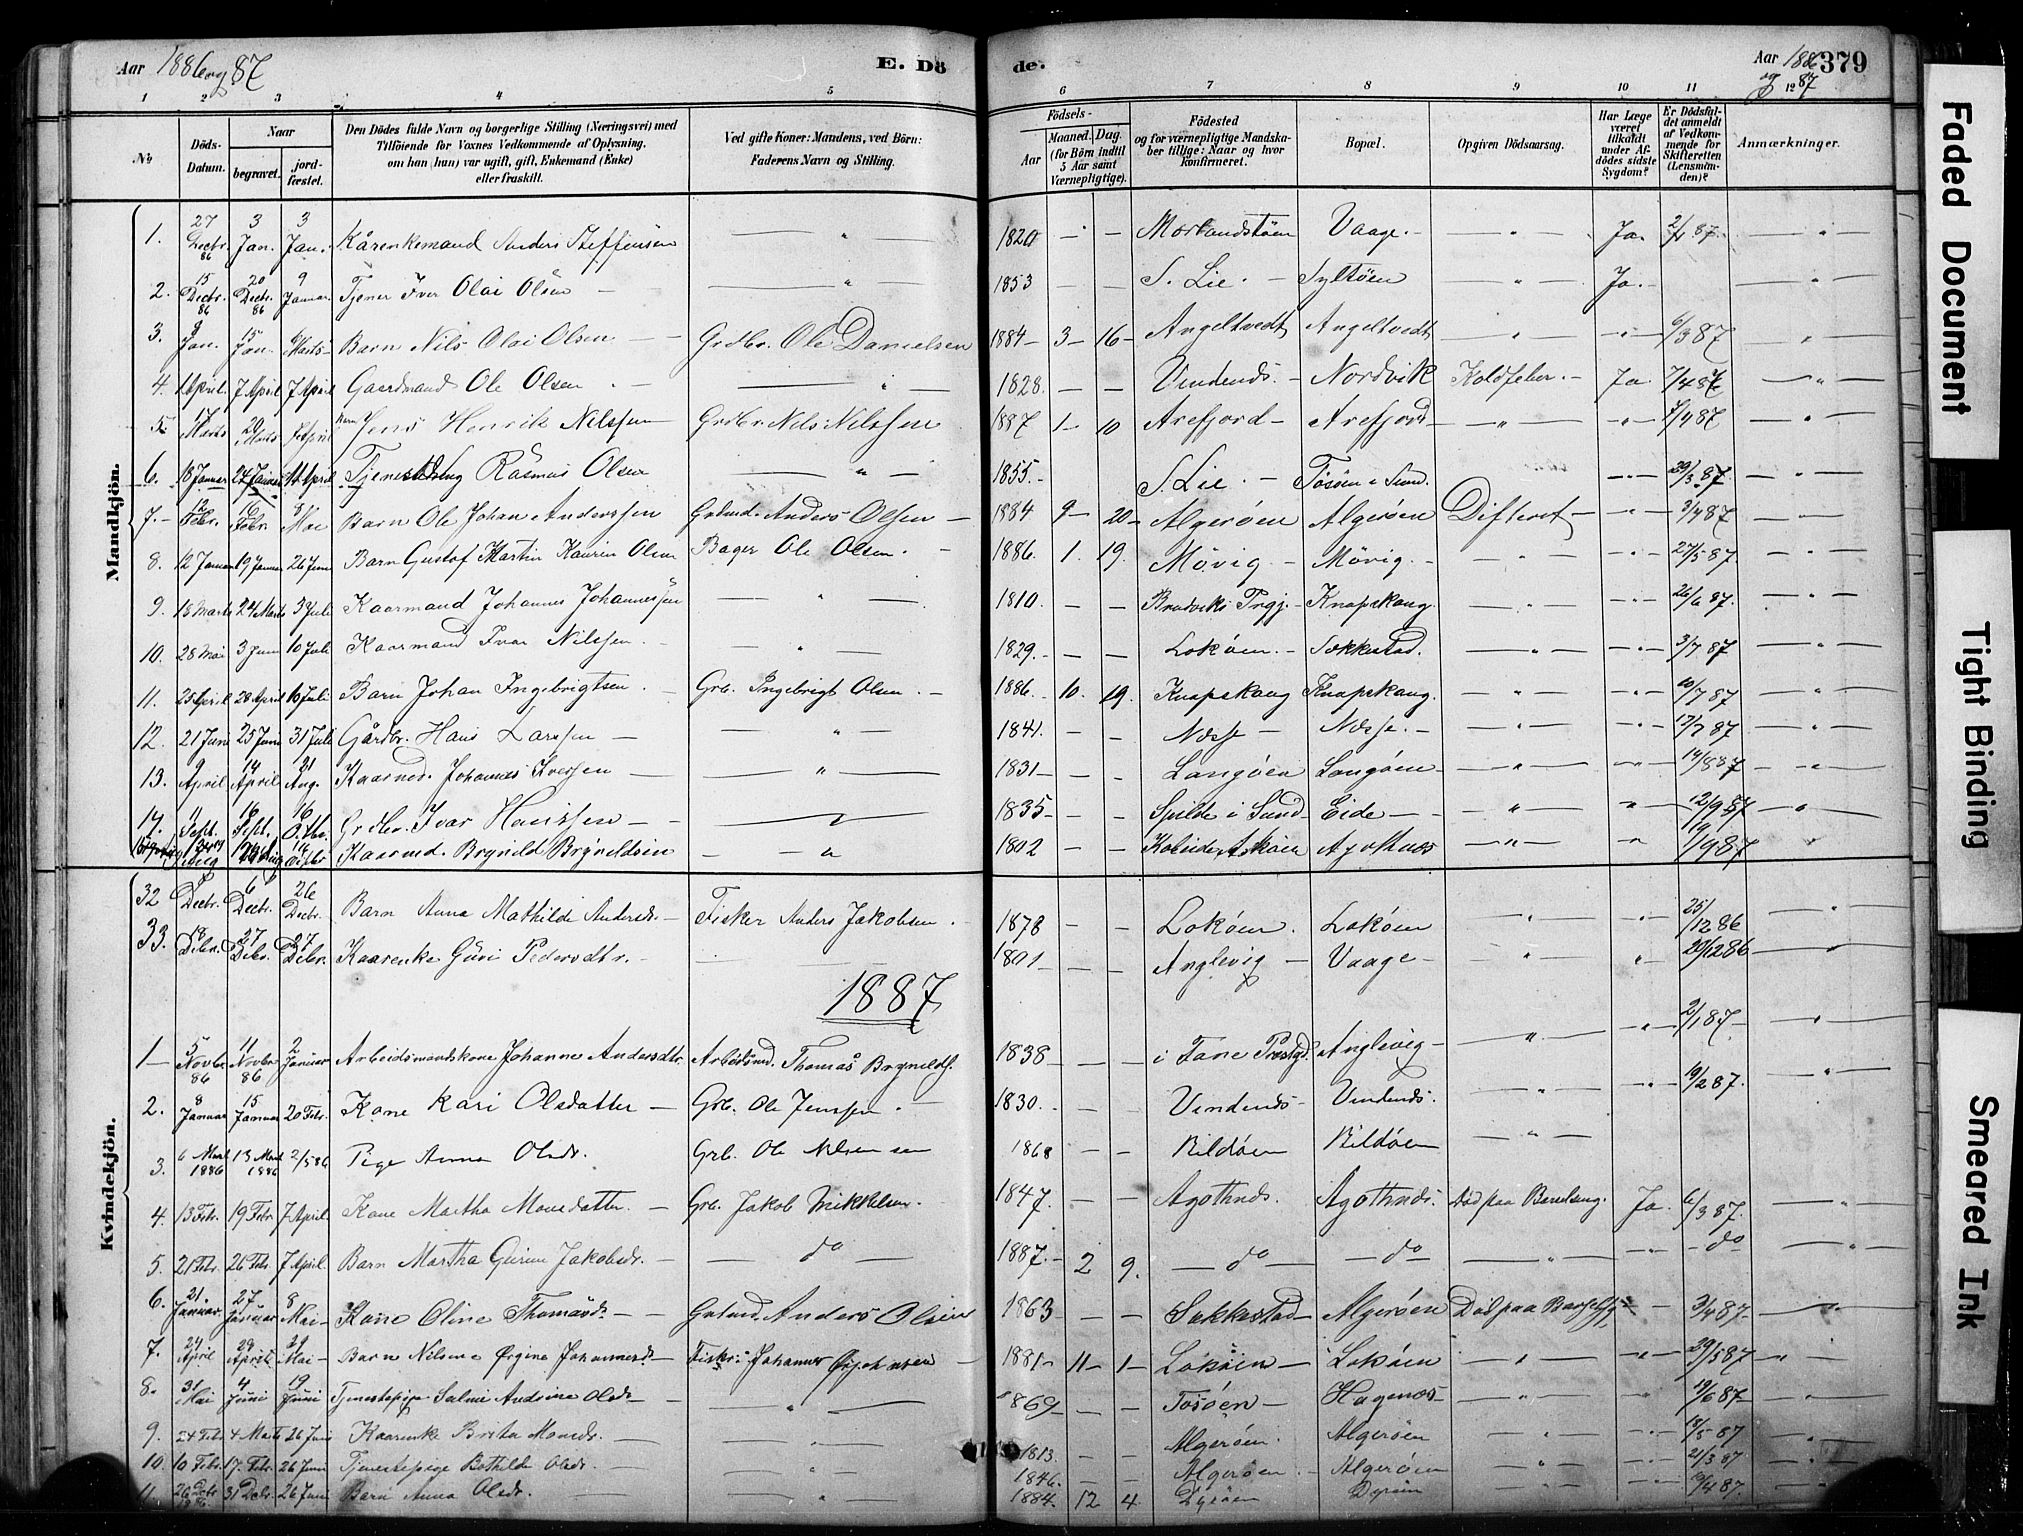 Aar 1886 og 87
E. Dö
de.
Aar 1886 og 87
379
1 2 3 4 5 6 7 8 9 10 11 12
No
Döds-Datum.
Naar
begravet.
jordfæstet.
Den Dödes fulde Navn og borgerlige Stilling (Næringsvei) med
Tilföiende for Voxnes Vedkommende af Oplysning,
om han (hun) var ugift, gift, Enkemand (Enke)
eller fraskilt.
Ved gifte Koner: Mandens, ved Börn:
Faderens Navn og Stilling.
Födsels-
Aar
Maaned. Dag.
(for Börn indtil
5 Aar samt
Værnepligtige).
Födested
og for værnepligtige Mandskaber tillige: Naar og hvor
konfirmeret.
Bopæl.
Opgiven Dödsaarsag.
Har Læge været tilkaldt under Afdödes sidste Sygdom?
Er Dödsfaldet anmeldt af Vedkommende for Skifteretten (Lensmanden)?
Anmærkninger.
Mandkjön.
1. 27 Decbr. 86 3 Jan. 3 Jan. Kårenkemand Anders Steffensen " 1820 - - Morlandstöen Vaage. " Ja. 2/1 87. "
2. 15 Decbr. 86 20 Decbr. 86 9 Januar Tjener Iver Olai Olsen " 1853 - - S. Lie. Syltöen " Ja. "
3. 9 Jan. 15 Jan. 6 Marts Barn Nils Olai Olsen Grdbr. Ole Danielsen 1884 3 16 Angeltvedt Angeltvedt " " 6/3 87 "
4. 1 April 7 April 7 April Gaardmand Ole Olsen " 1828 - - Vindends. Nordvik Koldfeber. Ja 7/4 87 "
5. 17 Marts 20 Marts 7 April Barn Jens Henrik Nilssen Grdbr. Nils Nilssen 1887 1 10 Arefjord Arefjord " " 7/4 87 "
6. 18 Januar 24 Januar 14 April Tjenestedreng Rasmus Olsen " 1855. S. Lie. Tösöen i Sund. " 29/3 87. "
7. 12 Febr. 16 Febr. 8 Mai Barn Ole Johan Anderssen Grdmd. Anders Olsen 1884 9 20 Algeröen Algeröen Difterit " 3/4 87 "
8. 12 Januar 19 Januar 26 Juni Barn Gustaf Martin Kaurin Olsen Bager Ole Olsen. 1886. 1. 19. Mövig Mövig. " " 27/5 87. "
9. 18 Marts 24 Marts 3 Juli Kaarmand Johannes Johannessen " 1810. - - Bruviks Prgj. Knapskaug. " " 26/6 87. "
10. 28 Mai 3 Juni 10 Juli Kaarmand Ivar Nilssen. " 1829. - - Loköen. Sækkestad. " " 3/7 87 "
11. 25 April 28 April 10 Juli Barn Johan Ingebrigtsen. Grb. Ingebrigt Olsen. 1886. 10. 19. Knapskaug Knapskaug. " " 10/7 87 "
12. 21 Juni 25 Juni 31 Juli Gårdbr. Hans Larssen " 1841. - - Næsse Næsse. " " 17/7 87 "
13. 9 April 14 April 21 Aug. Kaarmd. Johannes Iverssen " 1831 - - Langöen Langöen " " 14/8 87 "
14. 11 Sept. 18 Sept. 16 Octbr. Grdbr. Ivar Hanssen " 1835 - - Spilde i Sund Eide " " 12/9 87 "
Aug 16 Octbr Kaarmd. Brynild Brynildsen " 1802 - - Asköen Agothnes " " 19/9 87
Kvindekjön.
32 Decbr. 6 Decbr. 26 Decbr. Barn Anna Mathilde Andersdr. Fisker Anders Jakobsen. 1878 - - Loköen. Loköen " " 25/12 86 "
33. 18 Debr. 27 Debr. 27 Debr. Kaarenke Guri Pedersdtr. 1801 - - Anglevig Vaage " " 20/12 86 "
1887
1 5 Novbr 86 11 Novbr 86 2 Januar Arbeidsmandskone Johanne Andersdtr. Arbeidsmd. Thomas Brynilds. 1838 - - i Fane Prestgj. Anglevig " " 2/1 87. "
2. 8 Januar 15 Januar 20 Febr. Kone Kari Olsdatter Grb. Ole Jenssen. 1830. - - Vindends Vindends. " " 19/2 87. "
3. 6 Mart 1886 13 Mart 1886 2/5 86 Pige Anna Olsdr. Grb. Ole Nilsen 1868 - - Bildöen Bildöen "
4. 13 Febr. 19 Febr. 7 April. Kone Martha Monsdatter. Grb. Jakob Mikkelsen. 1847. - - Agothnds. Agothnds. Död paa Barselseng. Ja. 6/3 87. "
5. 21 Febr. 26 Febr. 7 April. Barn Martha Gurine Jakobsdr. do 1887. 2 9. do do " " do "
6. 21 Januar 27 Januar 8 Mai Kone Oline Thomasdr. Grdmd. Anders Olsen 1863 - - Sækkestad Algeröen Död paa Barsels. 3/4 87. "
7. 24 April 29 April 29 Mai Barn Nilsine Ørgine Johannesdr. Fisker Johannes Ørjohnsen 1881 11 1 Loköen Loköen " " 29/5 87 "
8. 31 Mai 4 Juni 19 Juni Tjenestepige Salmi Andrine Olsdr. " 1869 - - Tosöen Hagenæs " " 19/6 87 "
9. 24 Febr 4 Marts 26 Juni Kaarenke Brita Monsdr. " 1813. - - Algeröen. Algeröen " " 18/5 87 "
10. 10 Febr. 17 Febr. 26 Juni Tjenestepige Bothilde Olsdr. " 1846. - - Algeröen. Algeröen " " 21/3 87 "
11. 26 Debr 1886 31 Debr. 26 Juni Barn Anna Olsdr. " 1884. 12 4. Dyröen Dyröen " " 19/4 87. "
Faded Document
Tight Binding
Smeared Ink